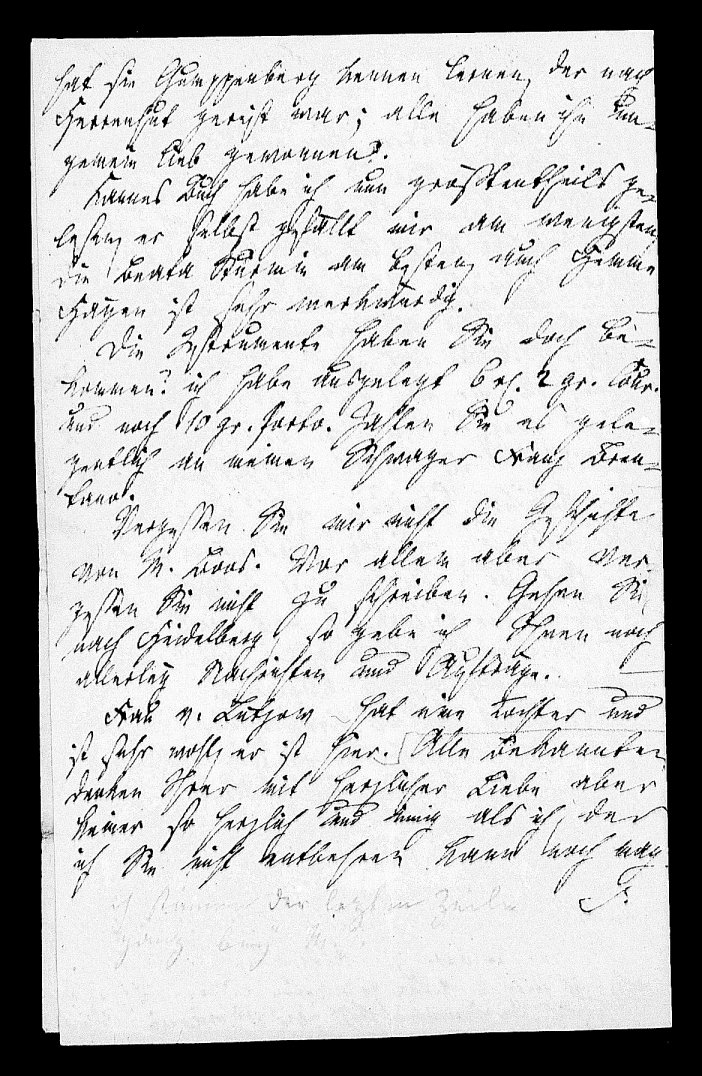 hat sie Gumppenberg kennen lernen, der nach
Herrenhut gereist war; alle haben ihn un-
gemein lieb gewonnen.
Kannes Buch habe ich nun großtentheils ge-
lesen, er selbst gefällt mir am wenigsten,
die Beata Sturmin am besten, auch Hemme
Hayen ist sehr merkwürdig.
Die Instrumente haben Sie doch be-
kommen? ich habe ausgelegt 6 rl. 2 gr. Cour.
und noch 10 gr. Porto. Zahlen Sie es gele-
gentlich an meinen Schwager Franz Bren-
tano.
Vergessen Sie mir nicht die Geschichte
von M. Boos. Vor allem aber ver-
gessen Sie nicht zu schreiben. Gehen Sie
nach Heidelberg, so gebe ich Ihnen noch
allerley Nachrichten und Aufträge.
Frau v. Lützow hat eine Tochter und
ist sehr wohl, er ist hier. Alle Bekannten
denken Ihrer mit herzlicher Liebe aber
keiner so herzlich und innig als ich, der
ich Sie nicht entbehren kann noch mag.
S.
ich stimme der letzten Zeile
ganz bey